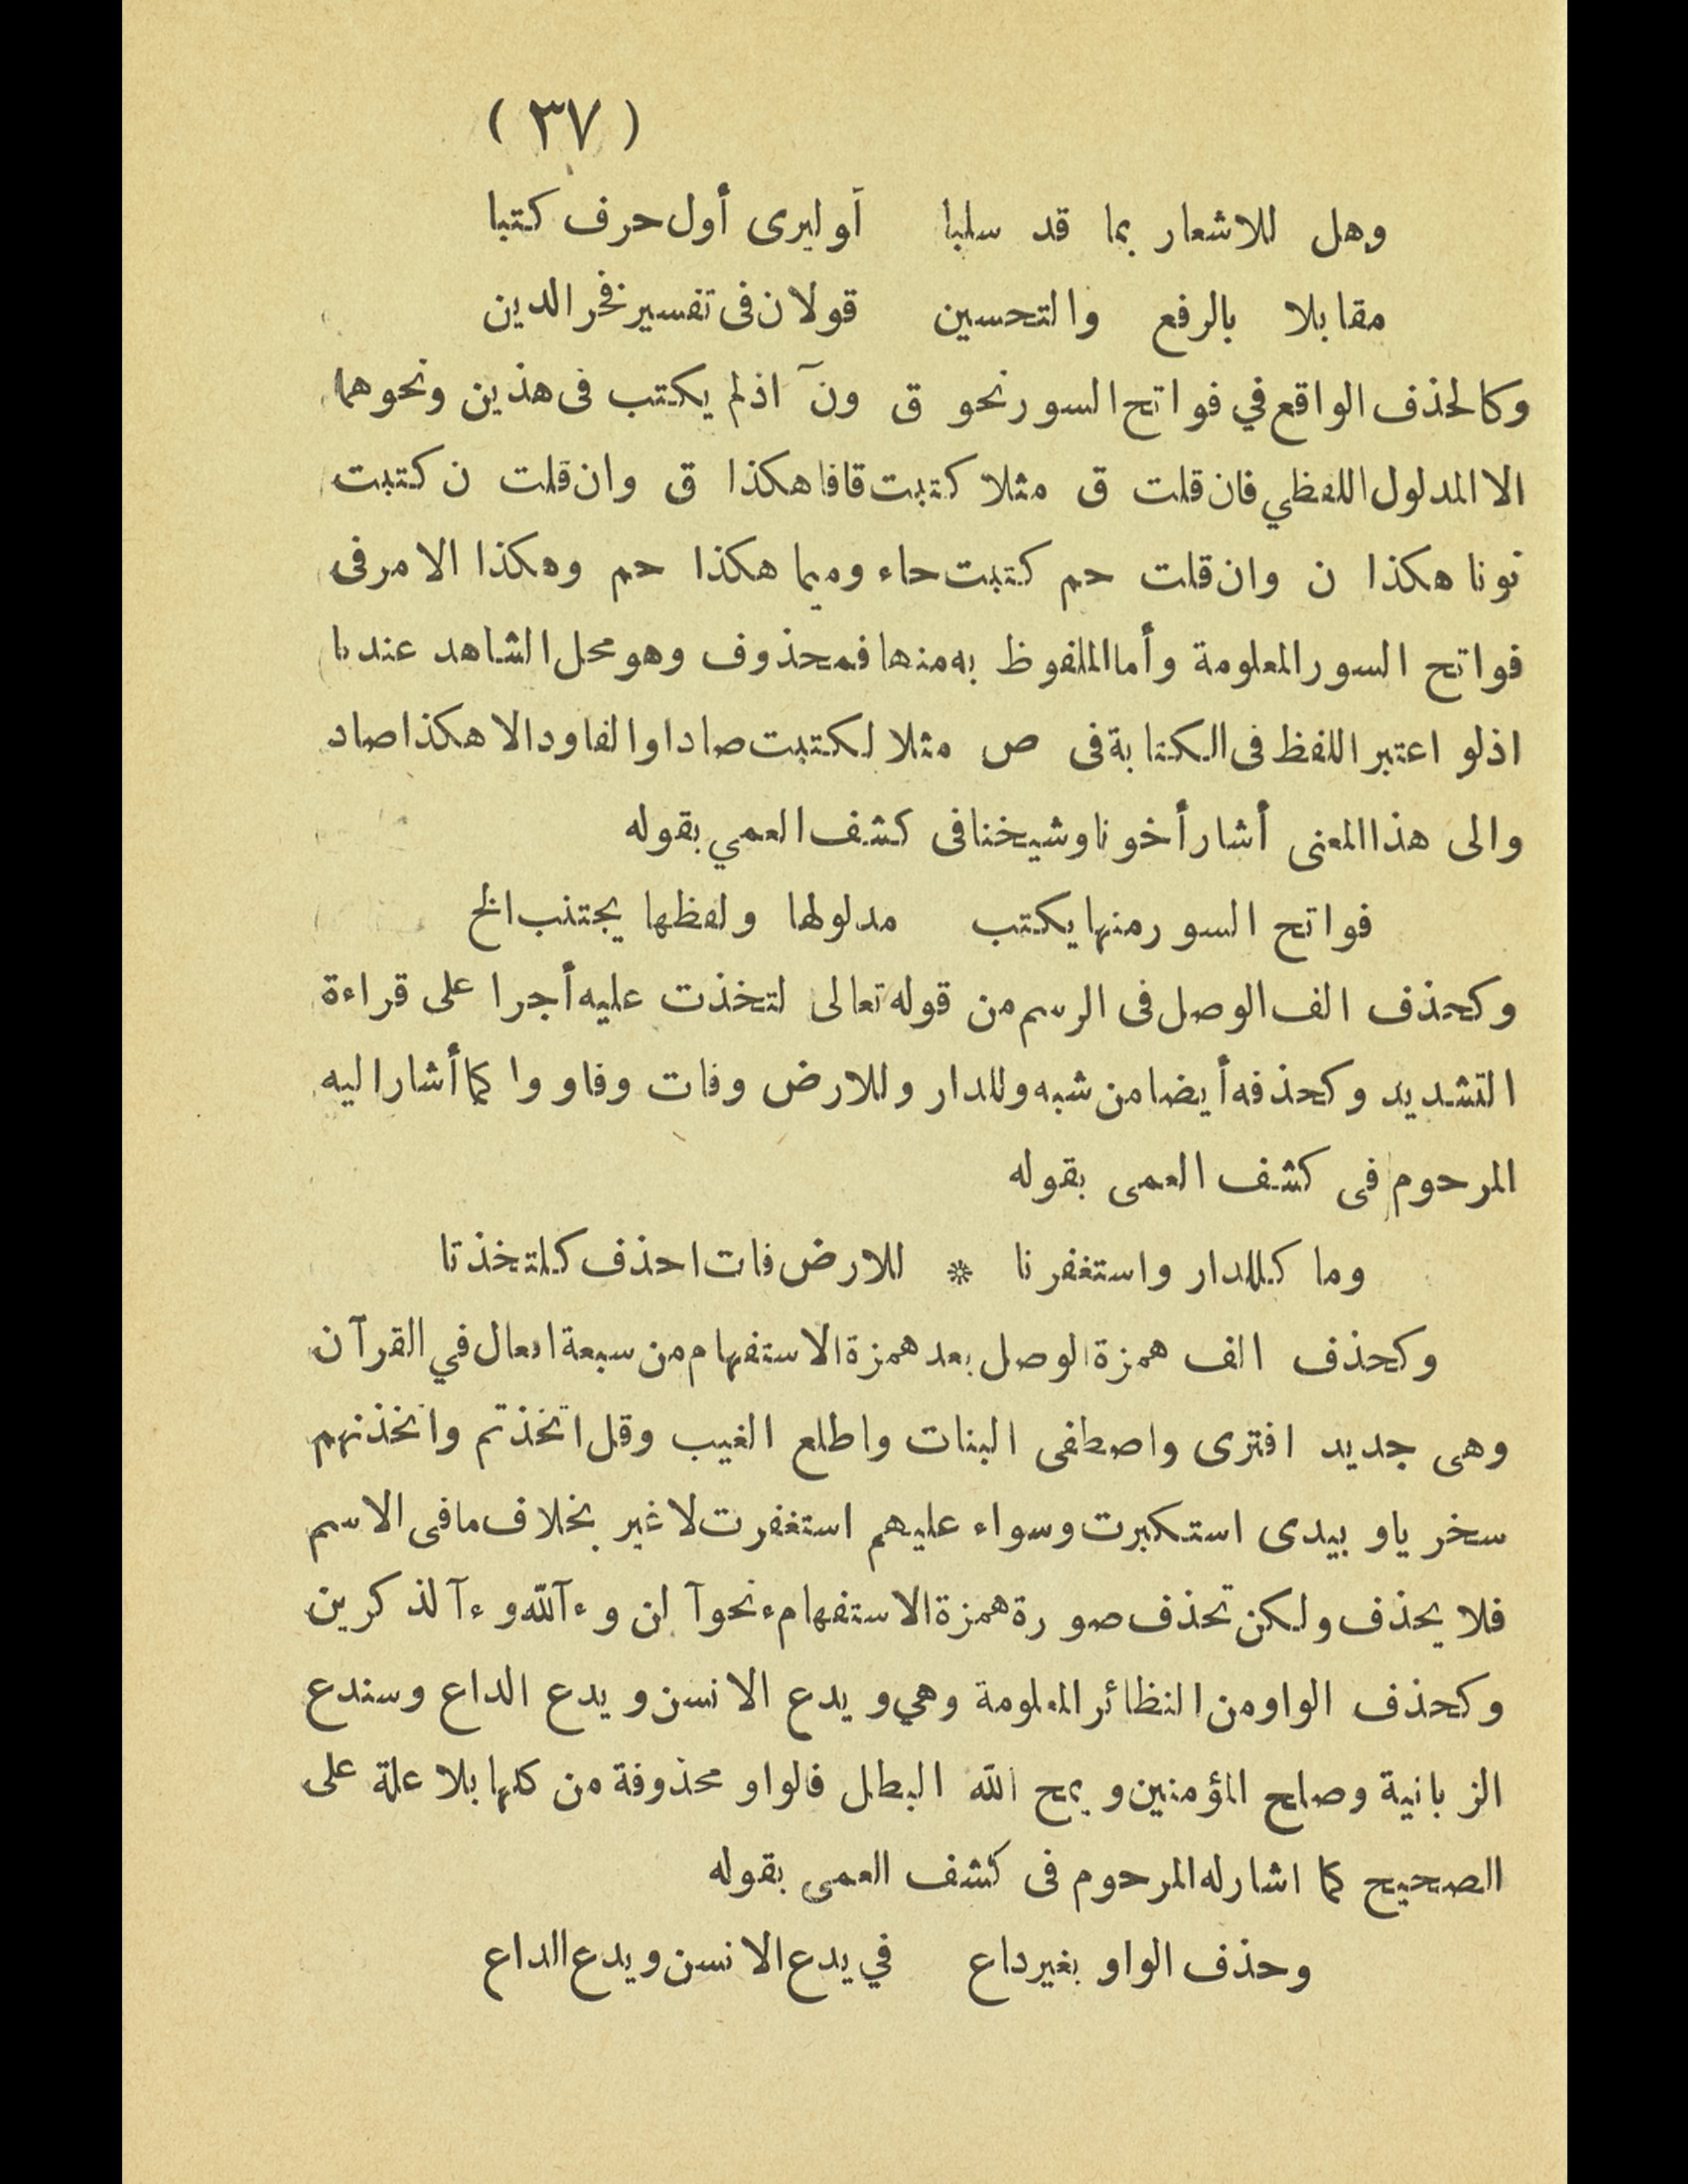 ( ٣٧ )
وهل للاشعار بما قد سلبا أو ليرى أول حرف كتبا
مقابلا بالرفع والتحسين قولان فى تفسير فخر الدين
وكالحذف الواقع في فواتح السور نحو ق ونٓ اذ لم يكتب فى هذين ونحوهما
الا المدلول اللفظي فان قلت ق مثلا كتبت قافا هكذا ق وان قلت ن كتبت
نونا هكذا ن وان قلت حم كتبت حاء وميما هكذا حم وهكذا الامر فى
فواتح السور المعلومة وأما الملفوظ به منها فمحذوف وهو محل الشاهد عندنا
اذ لو اعتبر اللفظ فى الكتابة فى ص مثلا لكتبت صادا والفا ودالا هكذا صاد
والى هذا المعنى أشار أخونا وشيخنا فى كشف العمي بقوله
فواتح السور منها يكتب مدلولها ولفظها يجتنب الخ
وكحذف الف الوصل فى الرسم من قوله تعالى لتخذت عليه أجرا على قراءة
التشديد وكحذفه أيضا من شبه وللدار وللارض وفات وفاووا كما أشار اليه
المرحوم فى كشف العمى بقوله
وما كللدار واستغفرنا * للارض فات احذف كلتخذتا
وكحذف الف همزة الوصل بعد همزة الاستفهام من سبعة افعال في القرآن
وهى جديد افترى واصطفى البنات واطلع الغيب وقل اتخذتم واتخذنهم
سخريا و بيدى استكبرت وسواء عليهم استغفرت لا غير بخلاف مافى الاسم
فلا يحذف ولكن تحذف صورة همزة الاستفهامء نحو آلن و ءآلله و ءآلذكرين
وكحذف الواو من النظائر المعلومة وهي ويدع الانسن ويدع الداع وسندع
الزبانية وصلح المؤمنين ويمح الله البطل فالواو محذوفة من كلها بلا علة على
الصحيح كما اشار له المرحوم فى كشف العمى بقوله
وحذف الواو بغير داع في يدع الانسن ويدع الداع